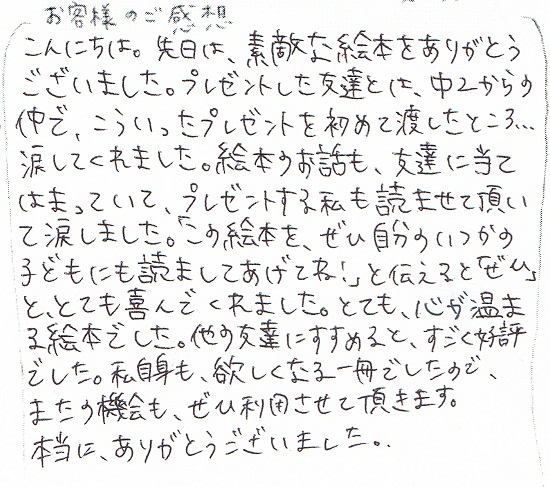 お客様のご感想
こんにちは。先日は、素敵な絵本をありがとう
ございました。プレゼントした友達とは、中2からの
仲で、こういったプレゼントを初めて渡したところ…
涙してくれました。絵本のお話も、友達に当て
はまっていて、プレゼントする私も読ませて頂い
て涙しました。「この絵本を、ぜひ自分のいつかの
子どもにも読ましてあげてね!」と伝えると「ぜひ」
と、とても喜んでくれました。とても、心が温ま
る絵本でした。他の友達にすすめると、すごく好評
でした。私自身も、欲しくなる一冊でしたので、
またの機会も、ぜひ利用させて頂きます。
本当に、ありがとうございました。.